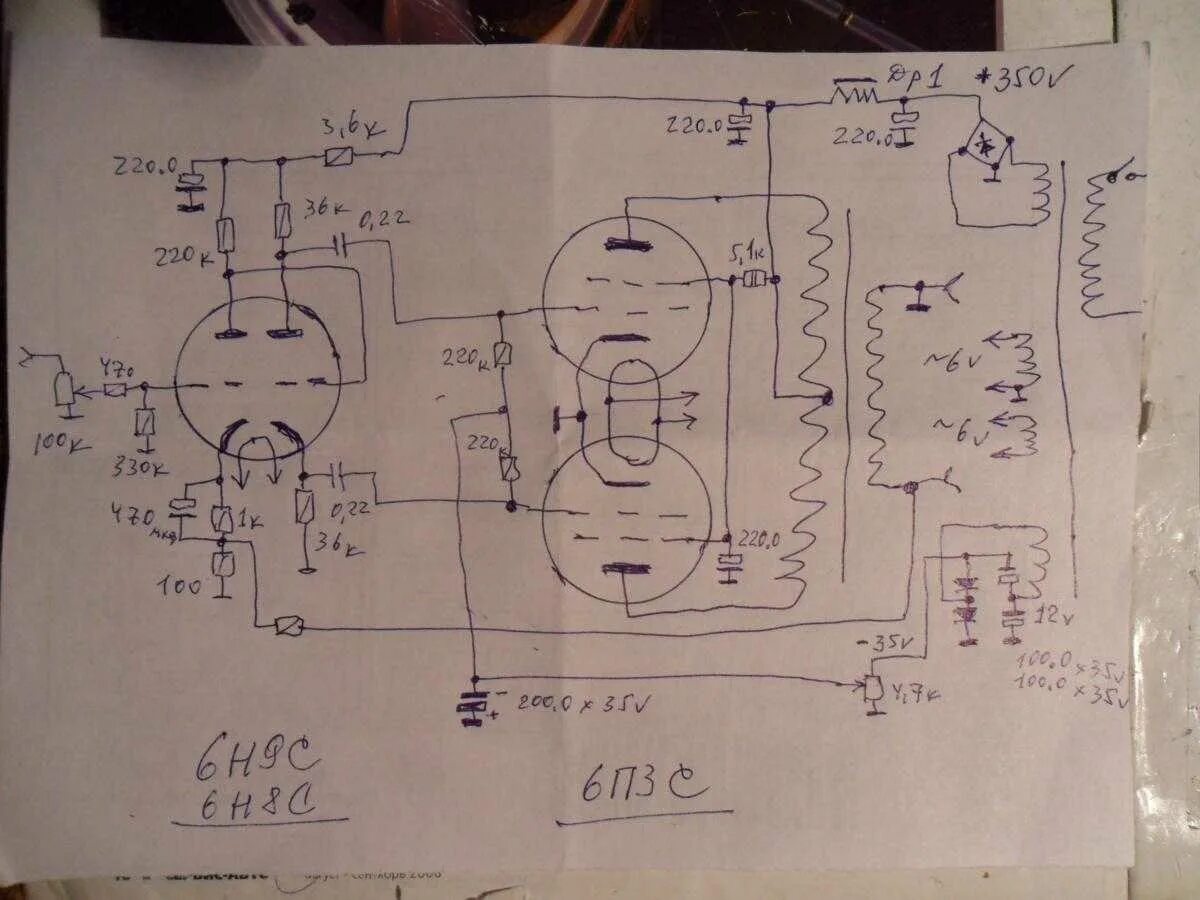 Др1
*350v
3,6к
220.0
220.0
220.0
36к
0,22
220к
5,1к
470
220к
~6v
100к
330к
220к
~6v
470
мкф
1к
0,22
36к
220.0
100
12v
-35v
100.0 x 35v
100.0 x 35v
200.0 x 35v
4,7к
- 
+
6Н9С
6Н8С
6П3С
август - сентябрь 2006